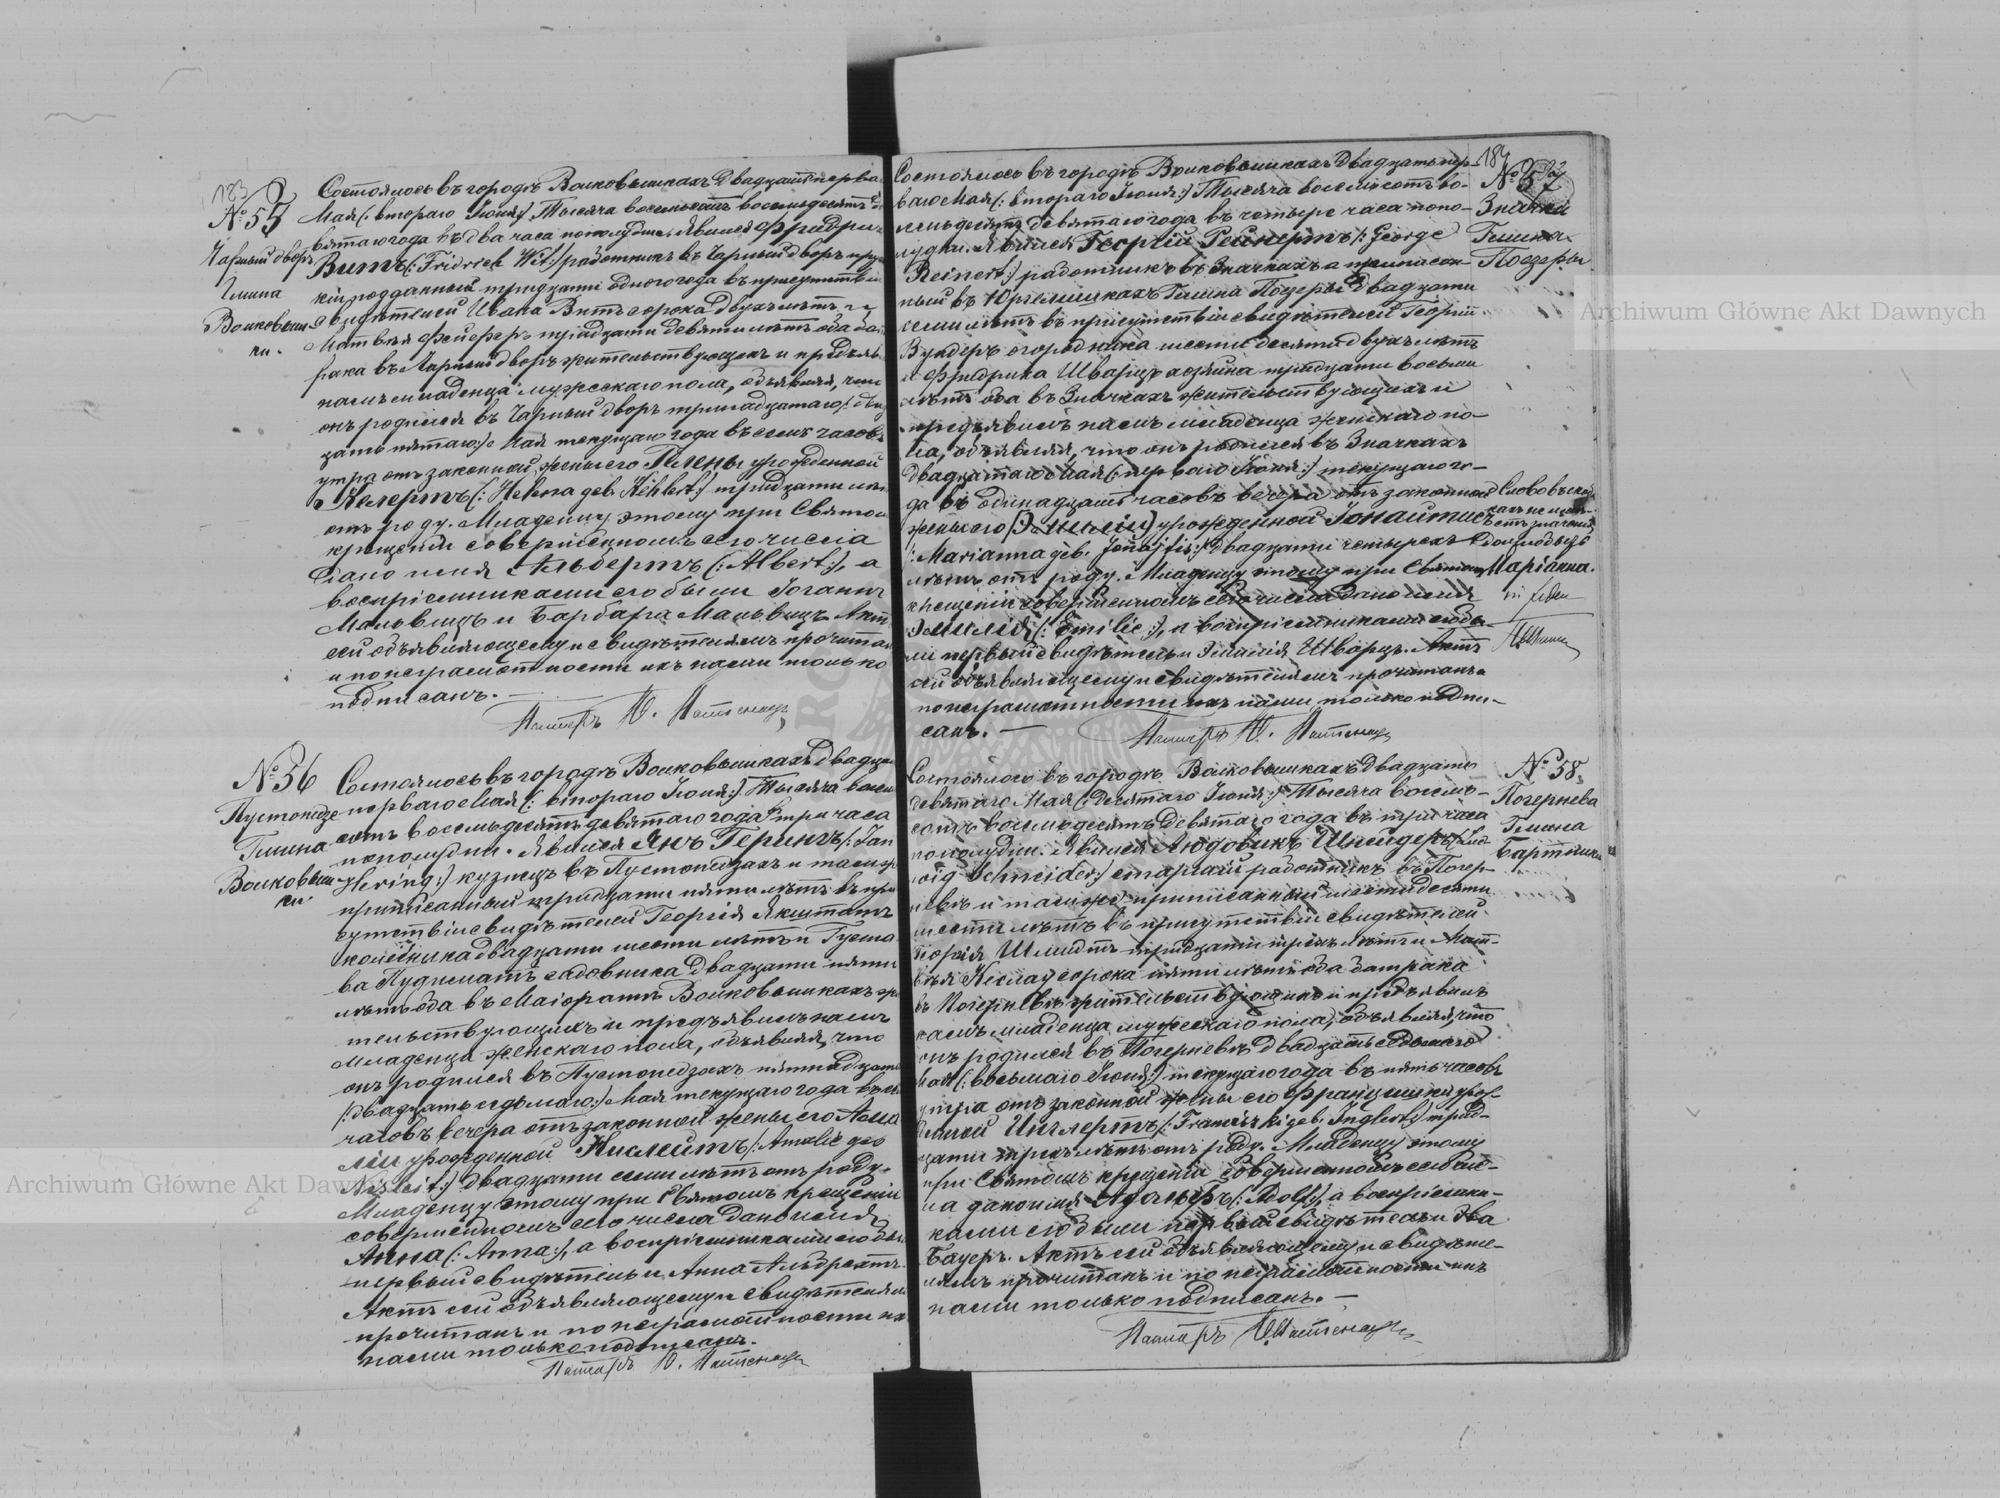 183
№ 55
Чарный дворъ
Гмина
Волковыш-
ки.
Состоялось въ городѣ Волковышкахъ двадцать перва
Мая (: втораго Іюня:) Тысяча восемьсотъ восемьдесятъ де
вятаго года въ два часа пополудни. Явился Фридри
Витъ (: Fridrich Wit :) работникъ въ Чарный дворъ прус
кій подданный тридцати одного года въ присутствіи
свидѣтелей Ивана Витъ сорока двухъ лѣтъ и
Матвѣя Фейферъ тридцати девяти лѣтъ оба ба
рака въ Чарный дворъ жительствующихъ и предъяв
намъ младенца мужескаго пола, объявляя, что
онъ родился въ Чарный дворъ тринадцатаго (: два
цать пятаго:) Мая текущаго года въ семь часовъ
утра отъ законной жены его Гелены урожденной
Келертъ (: Helena geb. Kehlert :) тридцати лѣ
отъ роду. Младенцу этому при Святом
крещеніи совершенномъ сего числа
дано имя Альбертъ (: Albert :), а
воспріемниками его были Іоганъ
Мальвицъ и Барбара Мальвицъ. Актъ
сей объявляющему и свидѣтелямъ прочитан
и по неграмотности ихъ нами только
подписанъ. —
Пасторъ Ю.
№ 56
Пустопедзе
Гмина
Волковыш-
ки.
Состоялось въ городѣ Волковышкахъ двадца
перваго Мая (: втораго Іюня:) Тысяча восем
сотъ восемьдесятъ девятаго года въ три часа
пополудни. Явился Янъ Герингъ (: Jan
Hering :) кузнецъ въ Пустопедзахъ и тамже
приписанный тридцати пяти лѣтъ въ при
сутствіи свидѣтелей Георгія Якштатъ
колёсника двадцати шести лѣтъ и Густа
ва Пудиматъ садовника двадцати пяти
лѣтъ оба въ Маіоратѣ Волковышкахъ жи
тельствующихъ и предъявилъ намъ
младенца женскаго пола, объявляя, что
онъ родился въ Пустопедзахъ пятнадцата
(: двадцать седьмаго:) Мая текущаго года въ
часовъ вечера отъ законной жены его Ама
ліи урожденной Нислейтъ (: Amalie geb
Nisleit :) двадцати семи лѣтъ отъ роду.
Младенцу этому при Святомъ крещеніи
совершенномъ сего числа дано имя
Анна (: Anna :), а воспріемниками его бы
первый свидѣтель и Анна Альбрехтъ.
Актъ сей объявляющему и свидѣтелям
прочитанъ и по неграмотности их
нами только подписанъ.
Пасторъ Ю.
184
№ 57
Значки
Гмина
Поезеры
Состоялось въ городѣ Волковышкахъ двадцать пер-
ваго Мая (: втораго Іюня:) Тысяча восемьсотъ во-
семьдесятъ девятаго года въ четыре часа попо-
лудни. Явился Георгій Рейнертъ (: George
Reinert :) работникъ въ Значкахъ а приписан-
ный въ Юргелишкахъ Гмина Поезеры двадцати
семи лѣтъ въ присутствіи свидѣтелей Георгій
Вундеръ огородника шестидесяти двухъ лѣтъ
и Фридриха Шварцъ хозяина тридцати восьми
лѣтъ оба въ Значкахъ жительствующихъ и
предъявилъ намъ младенца женскаго по-
ла, объявляя, что онъ родился въ Значкахъ
двадцатаго Мая (: перваго Іюня:) текущаго го-
да въ одинадцать часовъ вечера отъ законной
жены его (Эмиліи) урожденной Іонайтисъ
(: Marianna geb. Jonajtis :) двадцати четырехъ
лѣтъ отъ роду. Младенцу этому при Святомъ
крещеніи совершенномъ сего числа дано имя
Эмилія (: Emilie :), а воспріемниками его бы-
ли первый свидѣтель и Эмилія Шварцъ. Актъ
сей объявляющему и свидѣтелямъ прочитанъ и
по неграмотности ихъ нами только подпи-
санъ. —
Пасторъ Ю.
Слово въ скоб-
Маріанна.
in fidem
№ 58.
Погернева
Гмина
Бартники
Состоялось въ городѣ Волковышкахъ двадцать
девятаго Мая (: десятаго Іюня:) Тысяча восемь-
сотъ восемьдесятъ девятаго года въ три часа
пополудни. Явился Людовикъ Шнейдеръ (: Lud-
wig Schneider :) старшій работникъ въ Погер-
невѣ и тамже приписанный шестидесяти
шести лѣтъ въ присутствіи свидѣтелей
Георгія Шмидтъ тридцати трехъ лѣтъ и Мат-
вѣя Неслау сорока пяти лѣтъ оба батрака
въ Погерневѣ жительствующихъ и предъявилъ
намъ младенца мужескаго пола, объявляя, что
онъ родился въ Погерневѣ двадцать седьмаго
Мая (: восьмаго Іюня:) текущаго года въ пять часовъ
утра отъ законной жены его Францишки урож-
денной Инглертъ (: Franciszki geb. Inglert :) трид-
цати трехъ лѣтъ отъ роду. Младенцу этому
при Святомъ крещеніи совершенномъ сего чис-
ла дано имя Адольфъ (: Adolf :), а воспріемни-
ками его были первый свидѣтель и Эва
Бауеръ. Актъ сей объявляющему и свидѣте-
лямъ прочитанъ и по неграмотности ихъ
нами только подписанъ. —
Пасторъ Ю.
Archiwum Główne Akt Dawnych
Archiwum Główne Akt Dawnych